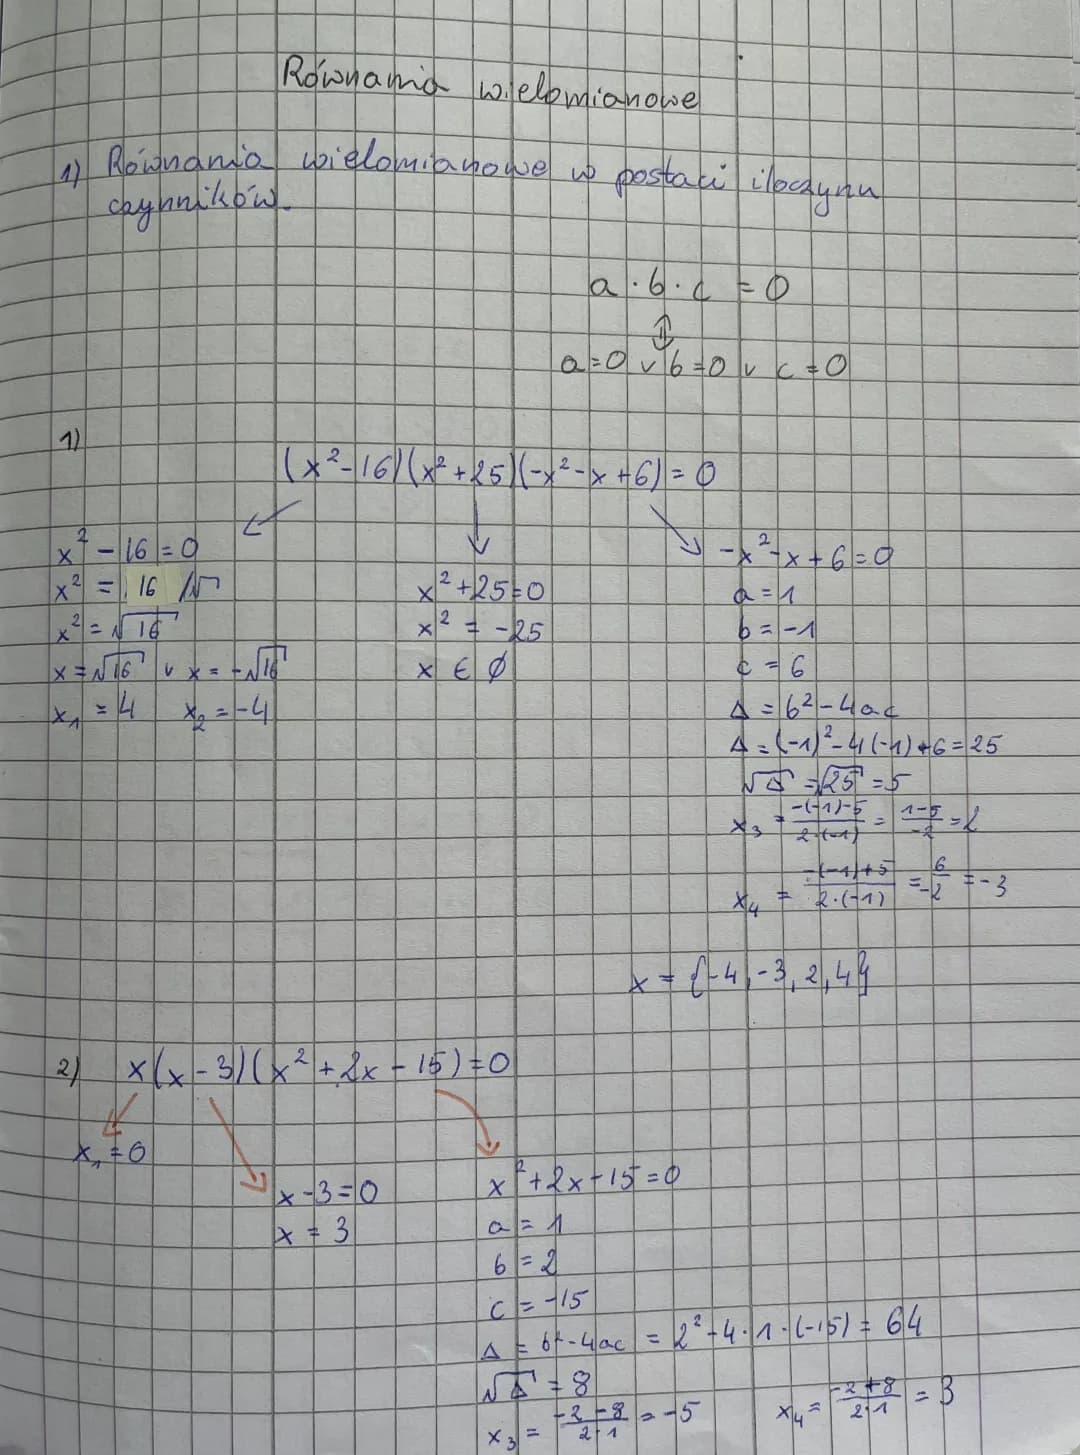 Równania wielomianowe
1) Równania wielomianowe w postaci iloczynu
czynników.
a · b · c = 0
⇕
a=0 ∨ b=0 ∨ c=0
1)
(x²-16)(x²+25)(-x²-x+6)=0
x²-16=0
x² = 16 /√
x² = √16
x = √16 ∨ x = -√16
x₁ = 4 x₂ = -4
x²+25=0
x² = -25
x ∈ ∅
-x²-x+6=0
a = 1
b = -1
c = 6
Δ = b²-4ac
Δ = (-1)²-4(-1)+6=25
√Δ = √25 = 5
x₃ = \frac{-(-1)-5}{2·(-1)} = \frac{1-5}{-2} = 2
x₄ = \frac{-(-1)+5}{2·(-1)} = \frac{6}{-2} = -3
x = {-4, -3, 2, 4}
2) x(x-3)(x²+2x-15)=0
x₁=0
x-3=0
x = 3
x²+2x-15=0
a = 1
b = 2
c = -15
Δ = b²-4ac = 2²-4·1·(-15) = 64
√Δ = 8
x₃ = \frac{-2-8}{2·1} = -5 x₄ = \frac{-2+8}{2·1} = 3